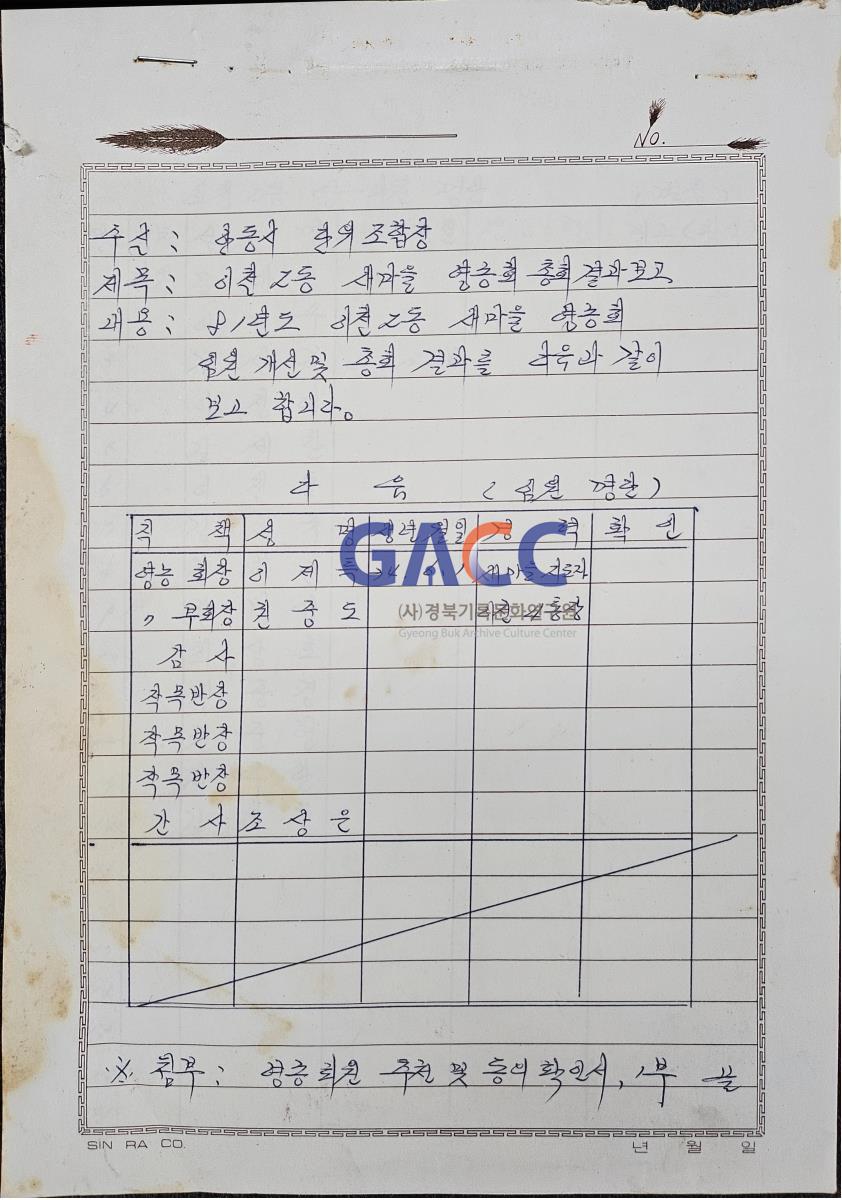 No.
수신 : 안동시 단위조합장
제목 : 이천2동 새마을 영농회 총회결과보고
내용 : 81년도 이천2동 새마을 영농회
임원 개선 및 총회 결과를 다음과 같이
보고 합니다.
다 음 ( 임원 명단 )
직 책 성 명 생년월일 경 력 확 인
영농 회장 이 제 새마을 지도자
〃 부회장 권 중 도 통장
감 사
작목반장
작목반장
작목반장
간 사 조 상 은
GACC
(사)경북기록문화연구원
Gyeong Buk Archive Culture Center
※ 첨부 : 영농회원 추천 및 동의확인서, 1부 끝
SIN RA CO. 년 월 일